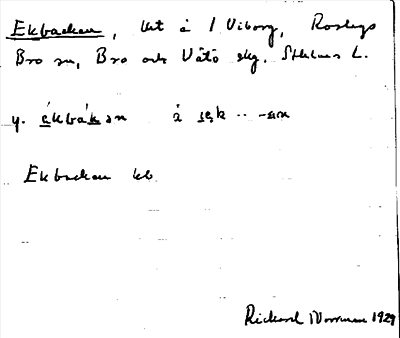 Ekbacken, lht å 1 Viborg, Roslags
Bro sn, Bro och Vätö skg. Sthlms L.
y. ékbákan å
Ekbacken kb
Rickard Norrman 1929